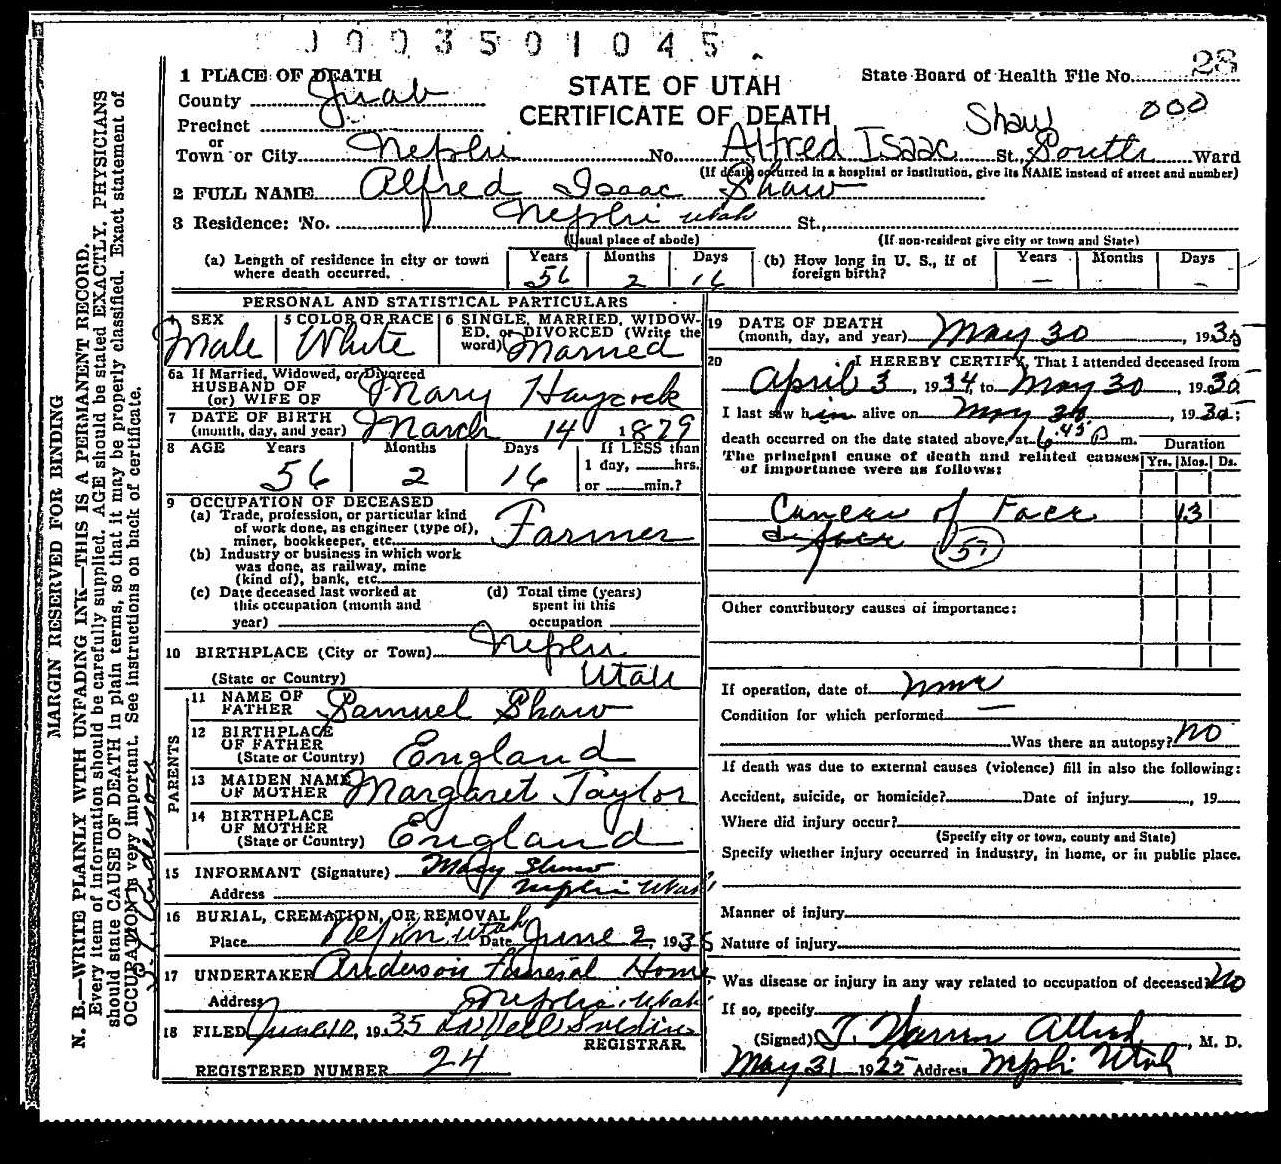 0093501045
STATE OF UTAH
CERTIFICATE OF DEATH
State Board of Health File No. 28
000
1 PLACE OF DEATH
County Juab
Precinct
or
Town or City Nephi No. Alfred Isaac Shaw St., South Ward
(If death occurred in a hospital or institution, give its NAME instead of street and number)
2 FULL NAME Alfred Isaac Shaw
3 Residence: No. Nephi Utah St.,
(Usual place of abode) (If non-resident give city or town and State)
(a) Length of residence in city or town where death occurred. Years 56 Months 2 Days 16
(b) How long in U. S., if of foreign birth? Years — Months Days -
PERSONAL AND STATISTICAL PARTICULARS
4 SEX Male
5 COLOR OR RACE White
6 SINGLE, MARRIED, WIDOWED, or DIVORCED (Write the word) Married
6a If Married, Widowed, or Divorced
HUSBAND OF
(or) WIFE OF Mary Haycock
7 DATE OF BIRTH
(month, day, and year) March 14 1879
8 AGE Years 56 Months 2 Days 16
If LESS than
1 day, hrs.
or min.?
9 OCCUPATION OF DECEASED
(a) Trade, profession, or particular kind
of work done, as engineer (type of),
miner, bookkeeper, etc. Farmer
(b) Industry or business in which work
was done, as railway, mine
(kind of), bank, etc.
(c) Date deceased last worked at
this occupation (month and
year)
(d) Total time (years)
spent in this
occupation
10 BIRTHPLACE (City or Town) Nephi
(State or Country) Utah
PARENTS
11 NAME OF
FATHER Samuel Shaw
12 BIRTHPLACE
OF FATHER
(State or Country) England
13 MAIDEN NAME
OF MOTHER Margaret Taylor
14 BIRTHPLACE
OF MOTHER
(State or Country) England
15 INFORMANT (Signature) Mary Shaw
Address Nephi Utah
16 BURIAL, CREMATION, OR REMOVAL
Place Nephi Utah Date June 2, 1935
17 UNDERTAKER Anderson Funeral Home
Address Nephi Utah
18 FILED June 10, 1935
REGISTRAR.
REGISTERED NUMBER 24
19 DATE OF DEATH
(month, day, and year) May 30, 1935
20 I HEREBY CERTIFY, That I attended deceased from
April 3, 1934, to May 30, 1935
I last saw him alive on May 30, 1935;
death occurred on the date stated above, at 6:45 P m.
The principal cause of death and related causes
of importance were as follows:
Duration
Yrs. Mos. Ds.
Cancer of Face 13
53
Other contributory causes of importance:
If operation, date of none
Condition for which performed —
Was there an autopsy? No
If death was due to external causes (violence) fill in also the following:
Accident, suicide, or homicide? Date of injury , 19
Where did injury occur?
(Specify city or town, county and State)
Specify whether injury occurred in industry, in home, or in public place.
Manner of injury
Nature of injury
Was disease or injury in any way related to occupation of deceased? No
If so, specify
(Signed) T. Warren Allred, M. D.
May 31 1935 Address Nephi Utah
MARGIN RESERVED FOR BINDING
N. B.—WRITE PLAINLY WITH UNFADING INK—THIS IS A PERMANENT RECORD.
Every item of information should be carefully supplied. AGE should be stated EXACTLY. PHYSICIANS
should state CAUSE OF DEATH in plain terms, so that it may be properly classified. Exact statement of
OCCUPATION is very important. See instructions on back of certificate.
Anderson